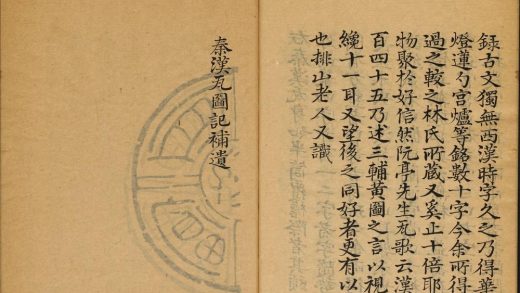 録古文獨無西漢時字久之乃得華
燈蓮勺宮爐等銘數十字今余所得
過之較之林氏所藏又奚止十倍耶
物聚於好信然阮亭先生瓦歌云漢
百四十五乃述三輔黄圖之言以視
纔十一耳又望後之同好者更有以
也排山老人又識
秦漢瓦圖記補遺